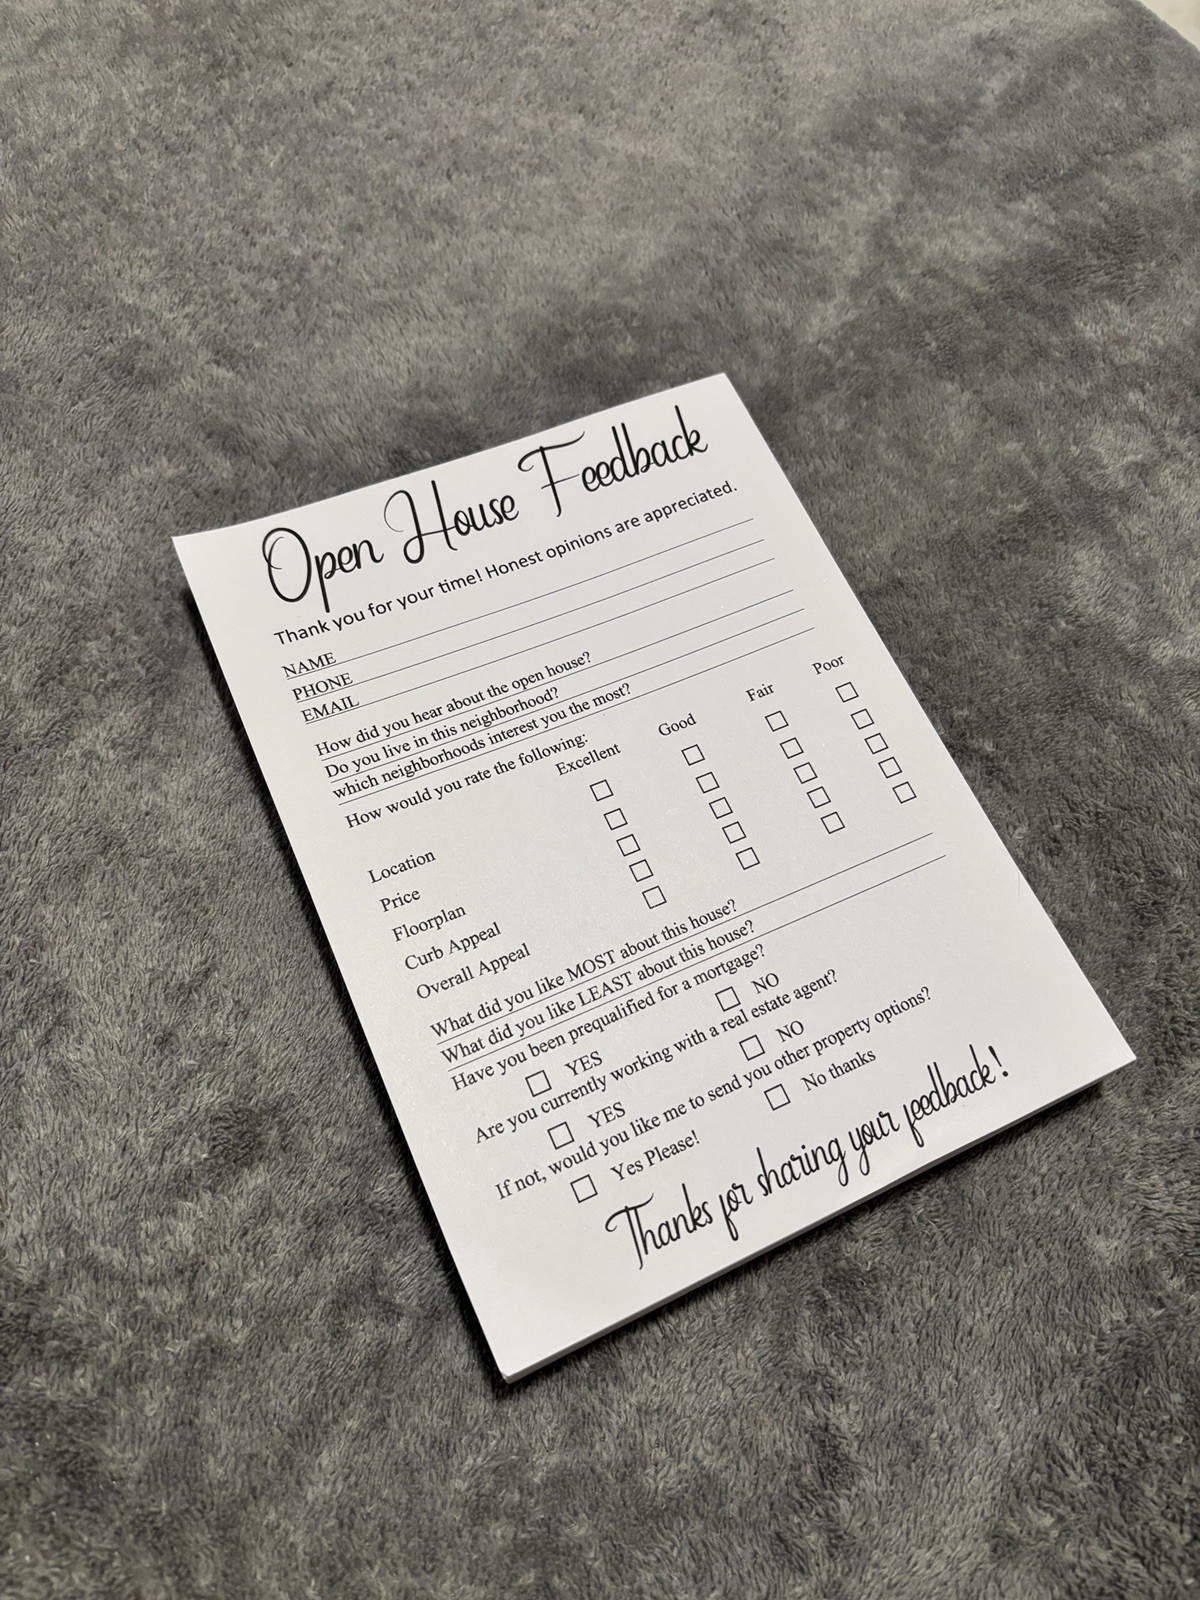 Open House Feedback
Thank you for your time! Honest opinions are appreciated.
NAME
PHONE
EMAIL
How did you hear about the open house?
Do you live in this neighborhood?
which neighborhoods interest you the most?
How would you rate the following:
Excellent Good Fair Poor
Location
Price
Floorplan
Curb Appeal
Overall Appeal
What did you like MOST about this house?
What did you like LEAST about this house?
Have you been prequalified for a mortgage?
YES NO
Are you currently working with a real estate agent?
YES NO
If not, would you like me to send you other property options?
Yes Please! No thanks
Thanks for sharing your feedback!